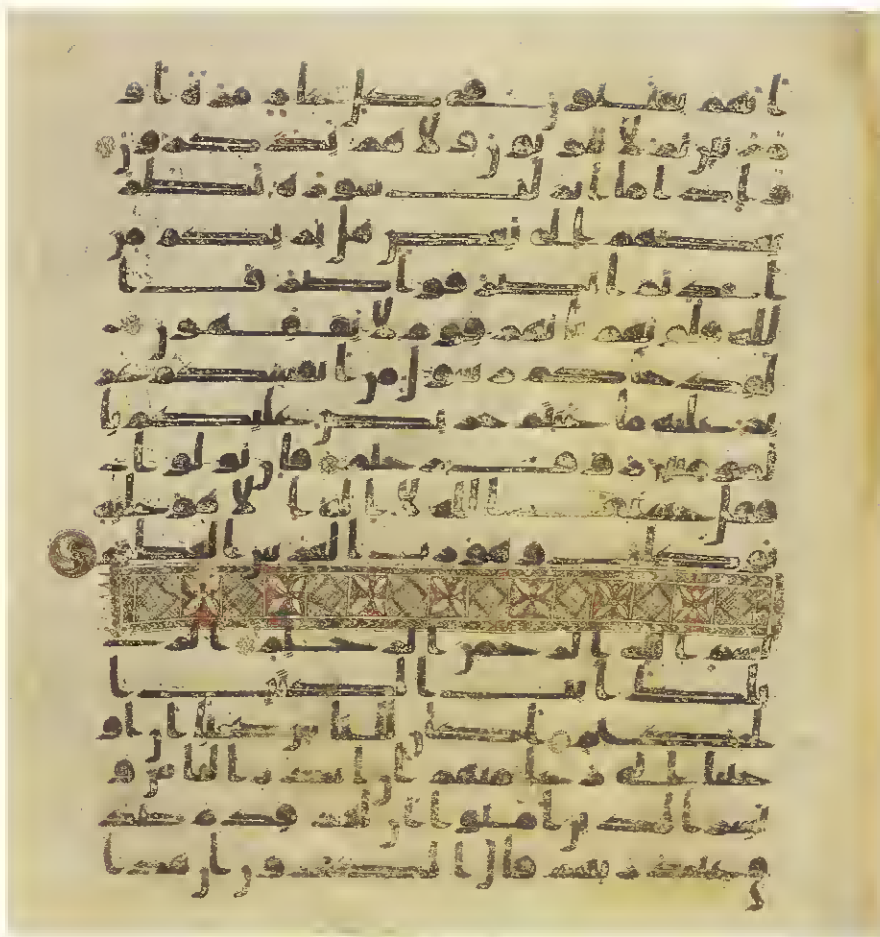 انهم يفتنون في كل عام مرة او
مرتين ثم لا يتوبون ولا هم يذكرون
واذا ما انزلت سورة نظر
بعضهم الى بعض هل يريكم من
احد ثم انصرفوا صرف ا
لله قلوبهم بانهم قوم لا يفقهون
لقد جاكم رسول من انفسكم عز
يز عليه ما عنتم حريص عليكم با
لمومنين روف رحيم فان تولوا
فقل حسبي الله لا اله الا هو عليه
توكلت وهو رب العرش العظيم
بسم الله الرحمن الرحيم الر
تلك ايت الكتا
ب الحكيم اكان للناس عجبا ان او
حينا الى رجل منهم ان انذر الناس و
بشر الذين امنوا ان لهم قدم صد
ق عند ربهم قال الكفرون ان هذا